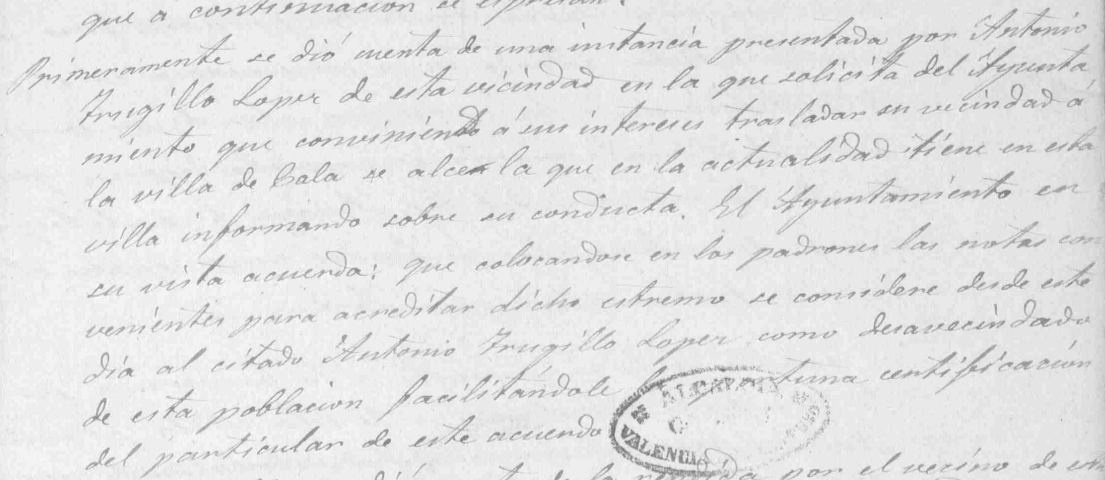 que a continuacion se espresan.
Primeramente se dió cuenta de una instancia presentada por Antonio
Trugillo Lopez de esta vecindad en la que solicita del Ayunta
miento que conviniendo á sus intereses trasladar su vecindad á
la villa de Cala se alce la que en la actualidad tiene en esta
villa informando sobre su conducta. El Ayuntamiento en
su vista acuerda: que colocandose en los padrones las notas con
venientes para acreditar dicho estremo se considere desde este
dia al citado Antonio Trugillo Lopez como desavecindado
de esta poblacion facilitándole una certificación
del particular de este acuerdo
ALCALDIA
VALENCIA
de la por el vecino de esta